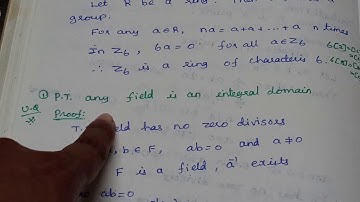 Let R be a ring.
group.
For any a∈R, na=a+a+...+a n times
In Z6, 6a=0 for all a∈Z6
∴ Z6 is a ring of characteris 6.
① P.T. any field is an integral domain
U.Q Proof:
field has no zero divisors
b∈F, ab=0 and a≠0
F is a field, a⁻¹ exists
ab=0